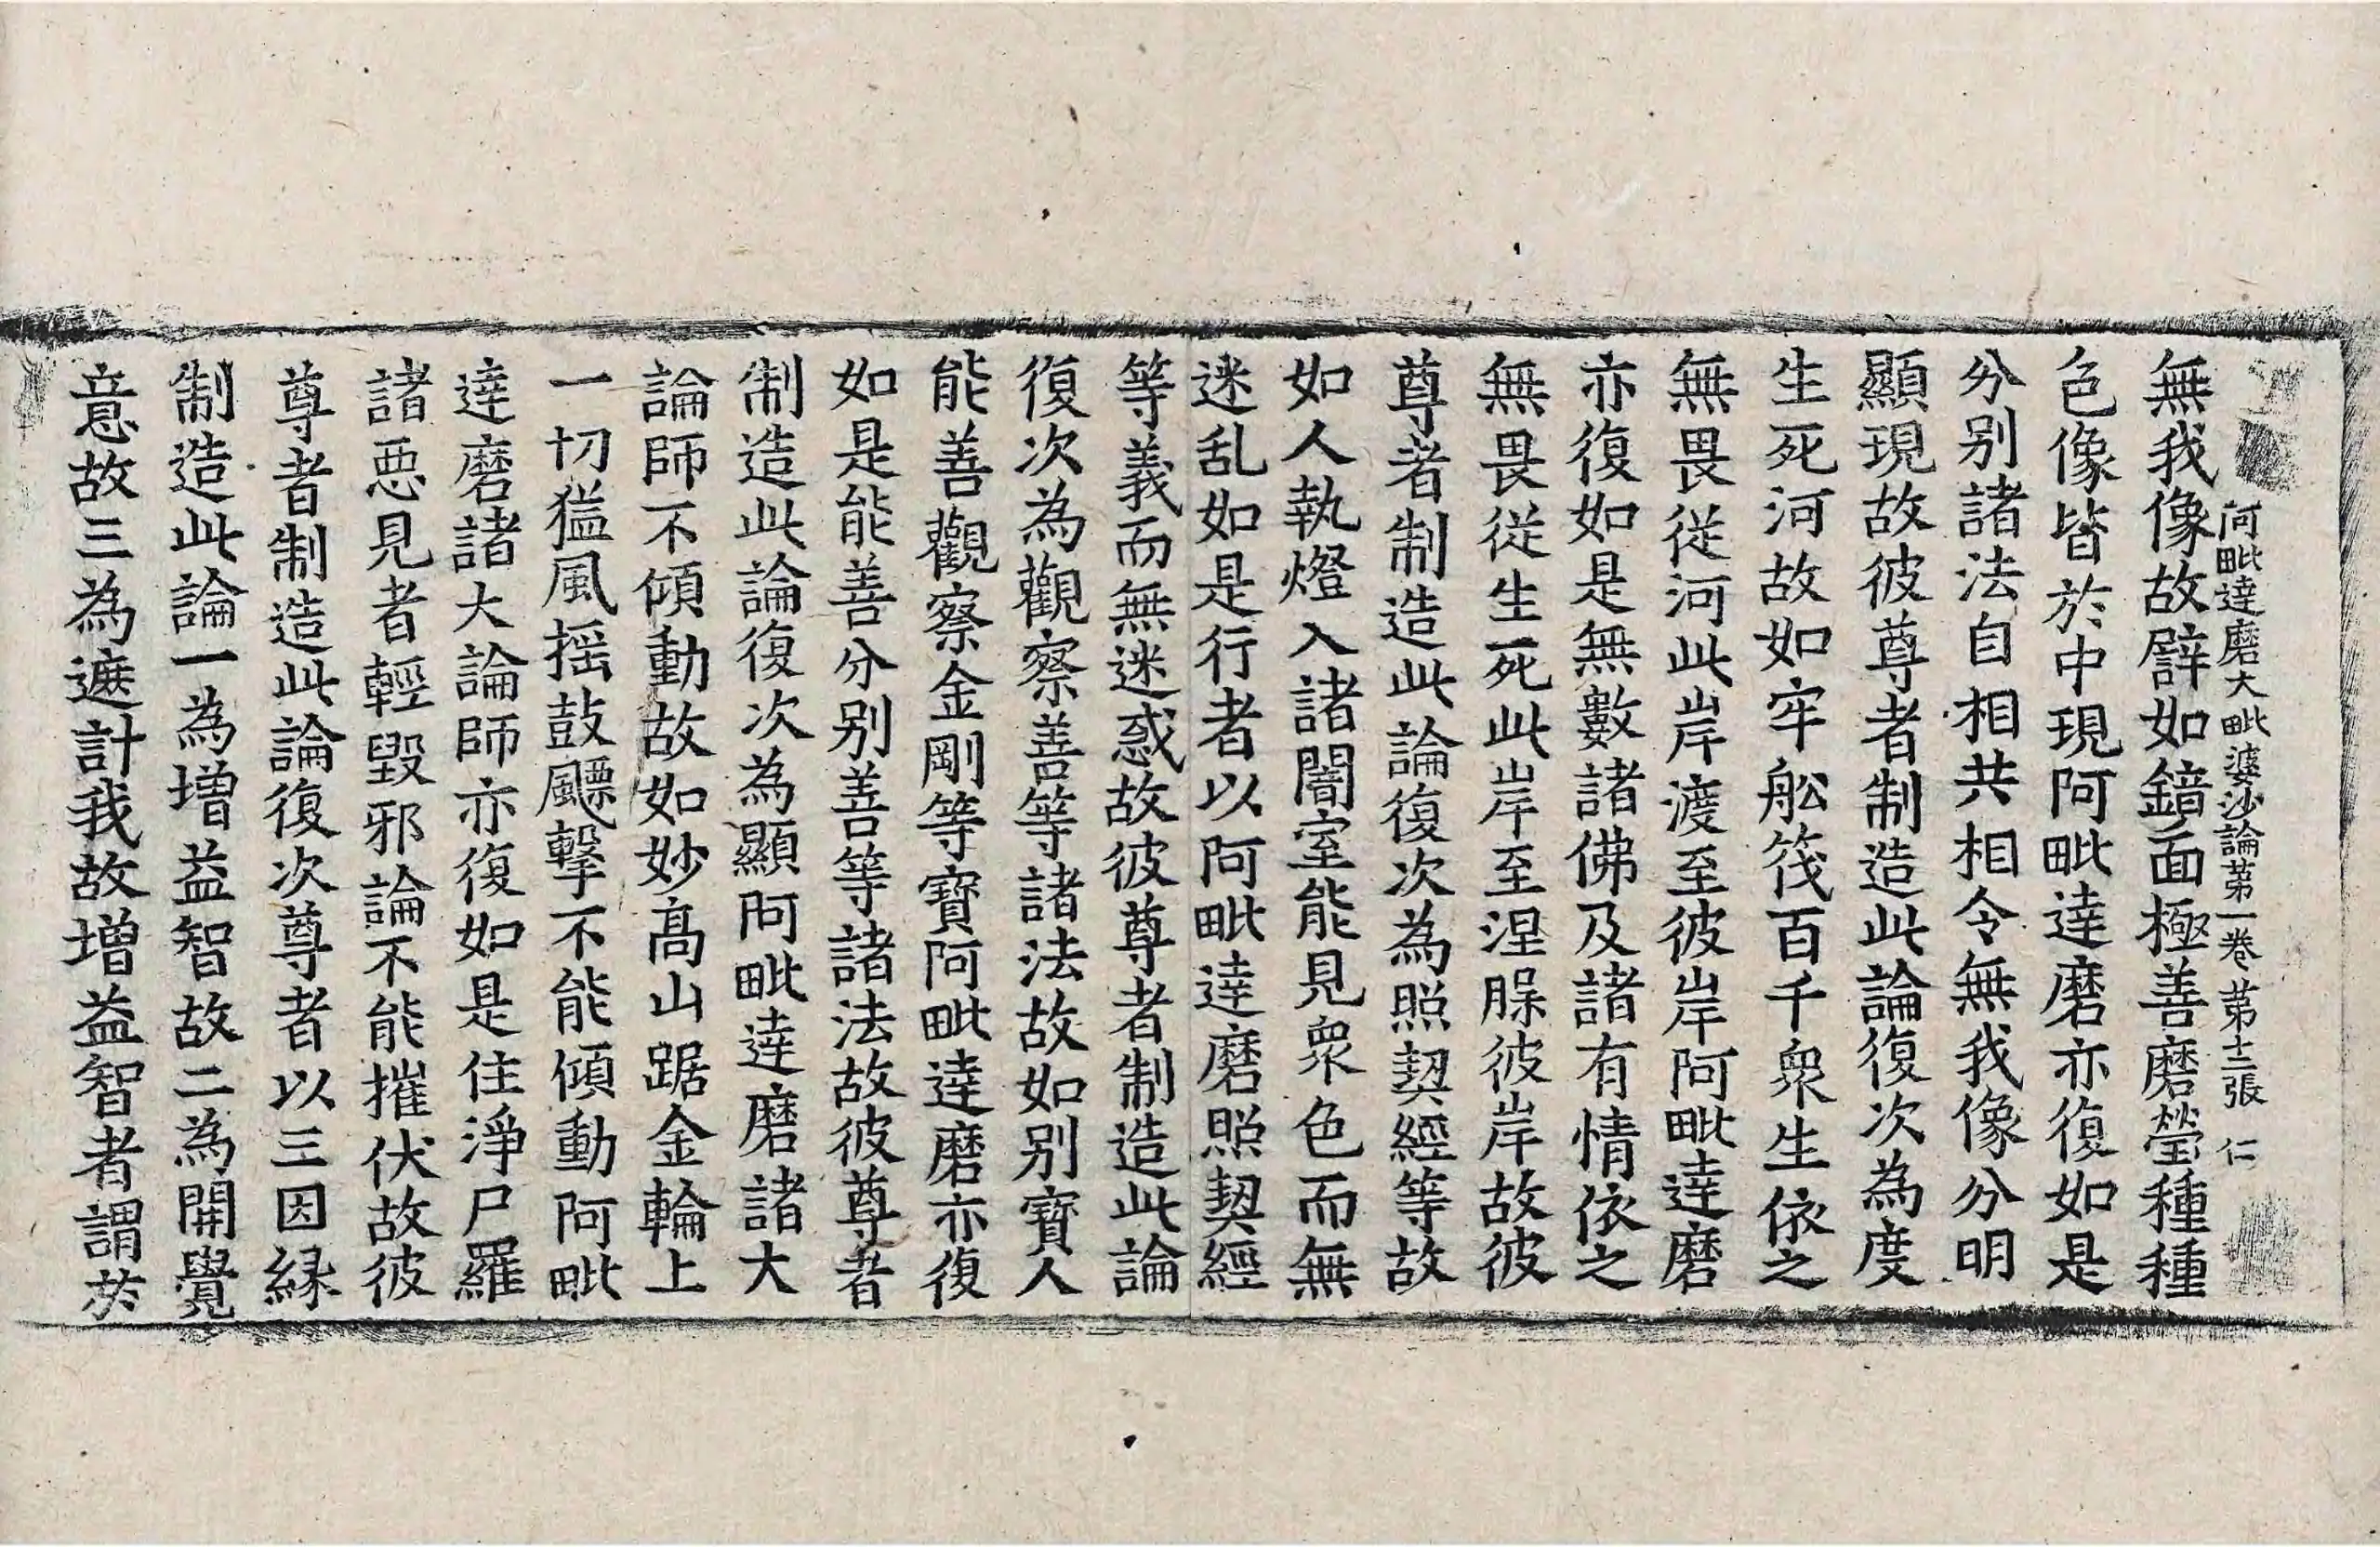 阿毗達磨大毗婆沙論第一卷 第十二張 仁
無我像故辟如鏡面極善磨瑩種種
色像皆於中現阿毗達磨亦復如是
分別諸法自相共相令無我像分明
顯現故彼尊者制造此論復次為度
生死河故如牢舩筏百千衆生依之
無畏從河此岸渡至彼岸阿毗達磨
亦復如是無數諸佛及諸有情依之
無畏從生死此岸至涅脵彼岸故彼
尊者制造此論復次為照契經等故
如人執燈入諸闇室能見衆色而無
迷乱如是行者以阿毗達磨照契經
等義而無迷惑故彼尊者制造此論
復次為觀察善等諸法故如別寶人
能善觀察金剛等寶阿毗達磨亦復
如是能善分別善等諸法故彼尊者
制造此論復次為顯阿毗達磨諸大
論師不傾動故如妙高山踞金輪上
一切猛風揺鼓飃擊不能傾動阿毗
達磨諸大論師亦復如是住淨尸羅
諸惡見者輕毀邪論不能摧伏故彼
尊者制造此論復次尊者以三因縁
制造此論一為增益智故二為開覺
意故三為遮計我故增益智者謂於